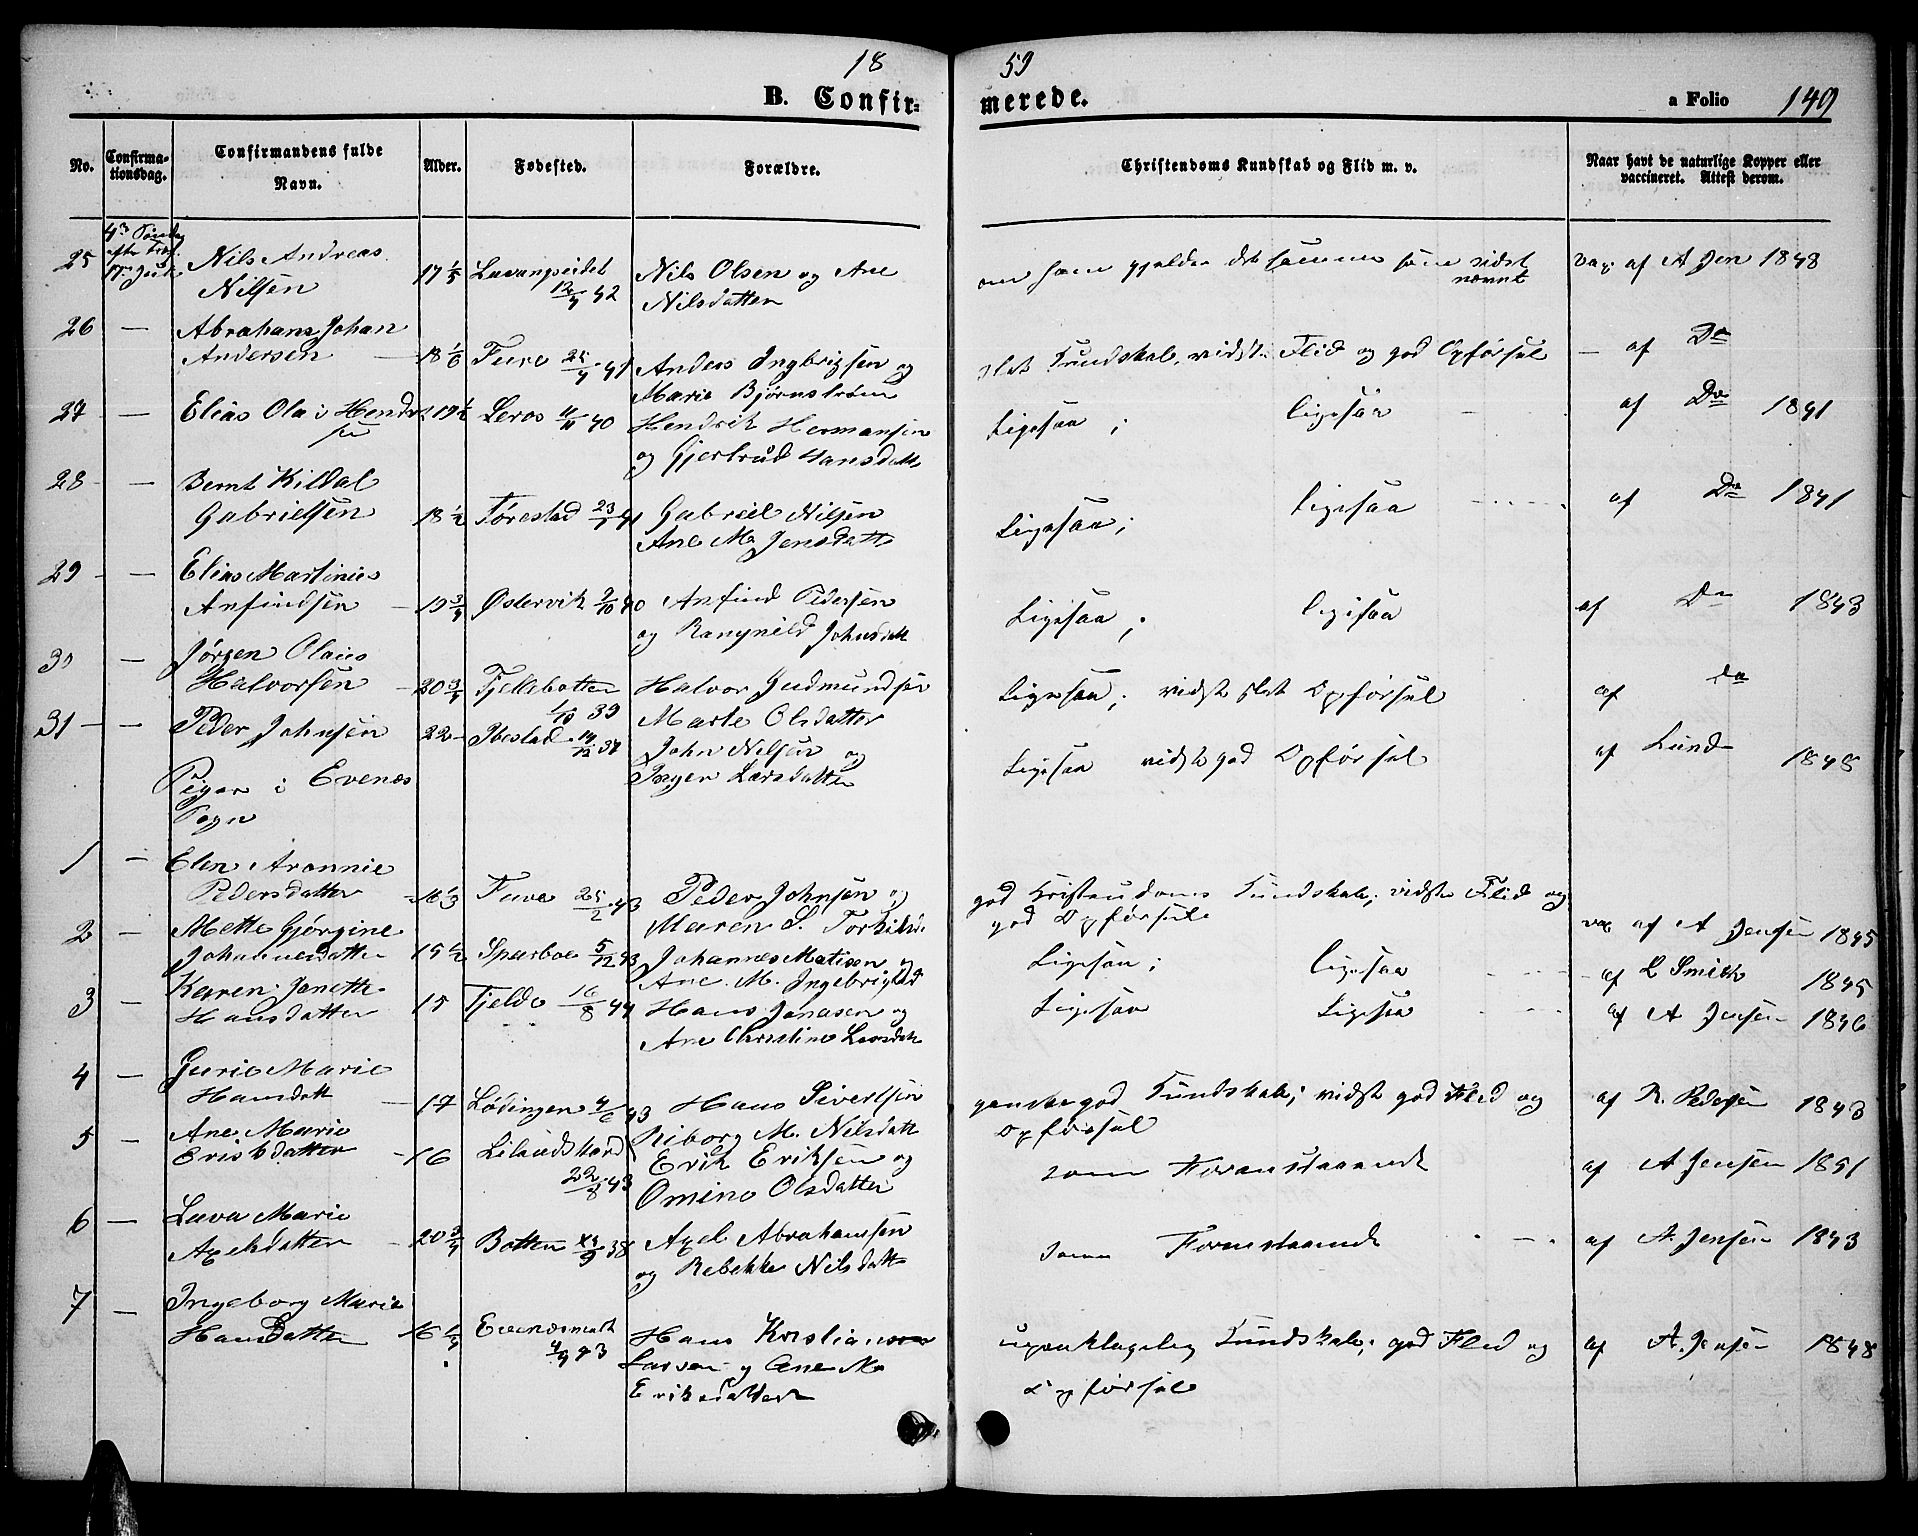 18 59
B. Confirmerede.
a Folio 149
No.
Confirmationsdag.
Confirmandens fulde Navn.
Alder.
Fødested.
Forældre.
Christendoms Kundskab og Flid m. v.
Naar havt de naturlige Kopper eller vaccineret. Attest derom.
25 Nils Andreas Nilsen 17 1/5 12/4 42 Nils Olsen og Ane Nilsdatter
som gjælder det samme som vidst nævnt vax af A Jen 1848
26 — Abraham Johan Andersen — 18 1/6 Fure 25/4 41 Anders Ingbrigsen og Marie Bjørnstrøm
slet Kundskab, vidst Flid og god Opførsel — af Do
27 — Elias Olai Hendriksen 19 1/2 Leros 11/11 40 Hendrik Hermansen og Gjertrud Hansdatt
Ligesaa; ligesaa af Do 1841
28 — Bernt Kildal Gabrielsen 18 1/2 Førestad 23/1 41 Gabriel Nilsen Ane M. Jensdatt
Ligesaa; ligesaa af Do 1841
29 — Elias Martinus Anfindsen — 19 3/4 Østervik 2/10 40 Anfind Pedersen og Rangnild Johnsdatt
Ligesaa; ligesaa af Do 1843
30 — Jørgen Olaus Halvorsen — 20 3/4 Fjeldbotten 1/10 39 Halvor Gudmundsen Marte Olsdatter
Ligesaa; vidst slet Opførsel af do
31 — Peder Johnsen 22 — Ibestad 14/12 37 John Nilsen og Inger Larsdatter
Ligesaa vidst god Opførsel af Lund 1848
Piger i Evenæs Sogn
1 — Elen Aronnie Pedersdatter 16 1/3 Fuve 25/2 43 Peder Johnsen og Maren S. Torkilsd.
god Kristendoms Kundskab; vidste Flid og god Opførsel vax af A Jensen 1845
2 — Mette Gjørgine Johannesdatter 15 1/2 Sparboe 5/12 43 Johannes Matisen og Ane. M. Ingebrigtsd
Ligesaa; ligesaa af L Smith 1845
3 — Karen Janette Hansdatter 15 Tjeldo 16/8 44 Hans Jonasen og Ane Christine Larsdatt
Ligesaa Ligesaa af A Jensen 1846
4 — Gurie Marie Hansdatt — 17 Lødingen 4/6 43 Hans Sivertsen Riborg M. Nilsdatt
ganske god Kundskab; vidst god Flid og Opførsel af R. Pedersen 1843
5 — Ane Marie Eriksdatter — 16 22/8 43 Erik Eriksen og Omine Olsdatter
som Foranstaaende af A Jensen 1851
6 — Lava Marie Axelsdatter — 20 3/4 Botten 9 38 Axel Abrahamsen og Rebekka Nilsdatt
som Foranstaaende af A. Jensen 1843
7 — Ingeborg Marie Hansdatter 16 1/4 4/4 43 Hans Kristian Larsen og Ane M. Eriksdatter
upaaklagelig Kundskab; god Flid og Opførsel af A. Jensen 1848